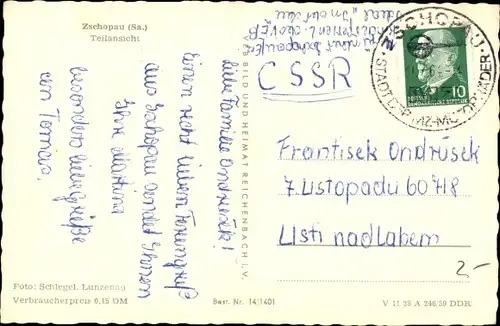 Zschopau (Sa.)
Teilansicht
Liebe Familie Ondrušek!
Einen recht lieben Feriengruß
aus Zschopau sendet Ihnen
Ihre Martina
besonders liebe Grüße
an Tomas.
VEB BILD UND HEIMAT REICHENBACH I. V.
ZSCHOPAU
STADT DER MZ-MOTORRÄDER
10
DEUTSCHE DEMOKRATISCHE REPUBLIK
CSSR
František Ondrušek
7. Listopadu 607/8
Usti nad Labem
2,-
Foto: Schlegel, Lunzenau
Verbraucherpreis 0,15 DM
Best. Nr. 14/1401
V 11 28 A 246/59 DDR